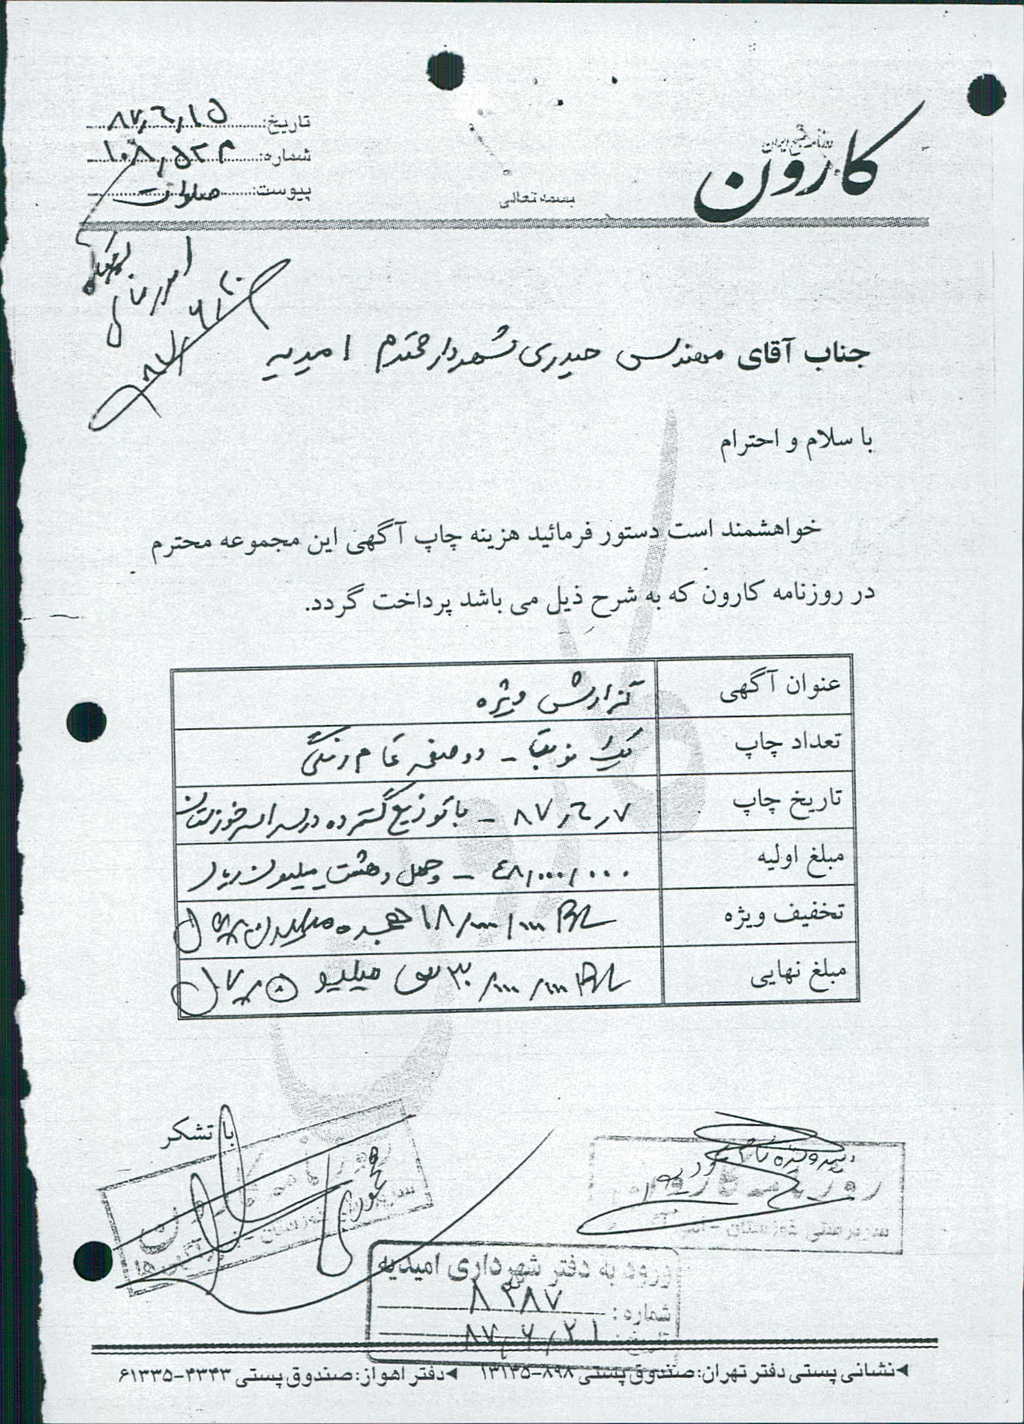 کارون
روزنامه صبح ایران
بسمه تعالی
تاریخ: ۸۷٫۶٫۱۵
شماره: ۱۰۸٫۵۲۳
پیوست:
امور مالی
۸۷٫۶٫۲۰
جناب آقای مهندس حیدری شهردار محترم امیدیه
با سلام و احترام
خواهشمند است دستور فرمائید هزینه چاپ آگهی این مجموعه محترم
در روزنامه کارون که به شرح ذیل می باشد پرداخت گردد.
عنوان آگهی گزارش ویژه
تعداد چاپ یک نوبت - دو صفحه تمام رنگی
تاریخ چاپ ۸۷٫۶٫۷ - با توزیع گسترده در سراسر خوزستان
مبلغ اولیه ۴۸/۰۰۰/۰۰۰ - چهل و هشت میلیون ریال
تخفیف ویژه ۱۸/۰۰۰/۰۰۰ ریال هجده میلیون ریال
مبلغ نهایی ۳۰/۰۰۰/۰۰۰ ریال سی میلیون ریال
با تشکر
روزنامه کارون
سرپرستی خوزستان -
ورود به دفتر شهرداری امیدیه
شماره: ۸۳۸۷
تاریخ: ۸۷٫۶٫۲۱
◄نشانی پستی دفتر تهران: صندوق پستی ۸۹۸-۱۳۱۴۵ ◄دفتر اهواز: صندوق پستی ۴۳۴۳-۶۱۳۳۵